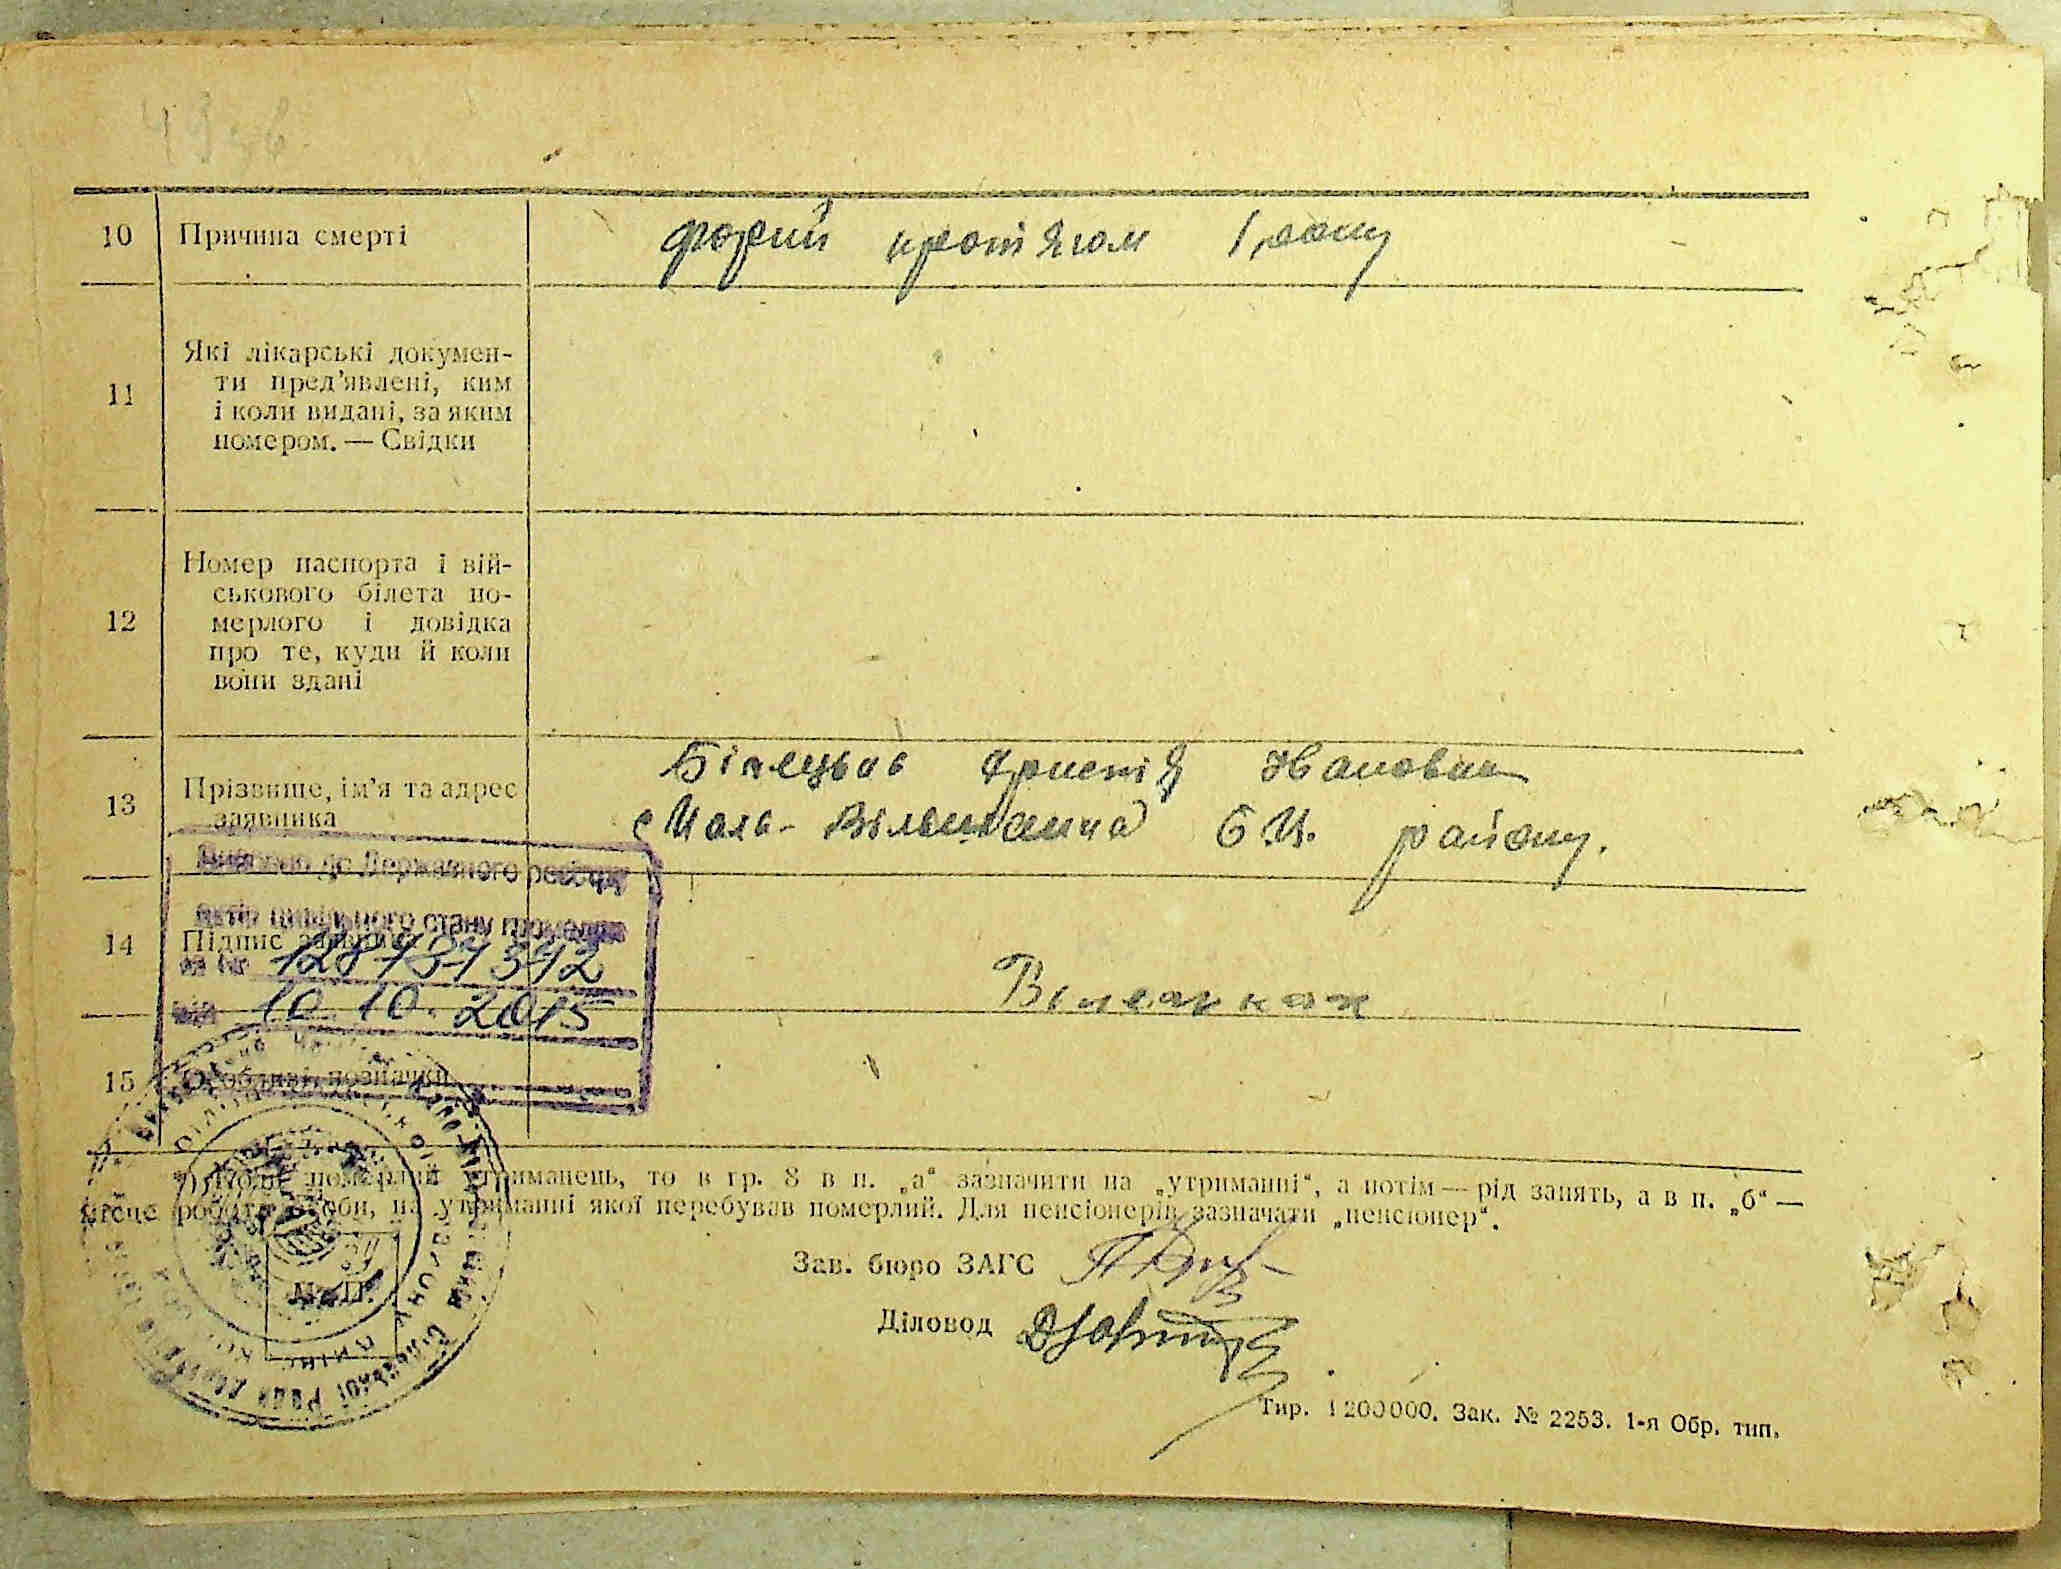 10 Причина смерті
хорий протягом 1 року
11 Які лікарські докумен-
ти пред’явлені, ким
і коли видані, за яким
номером. — Свідки
12 Номер паспорта і вій-
ськового білета по-
мерлого і довідка
про те, куди й коли
вони здані
13 Прізвище, ім’я та адрес
заявника
Білецька Христія Івановна
с Мала-Вільшанка Б Ц. району.
Державного реєстру
актів цивільного стану громадян
14 Підпис заявника
за №
від 10.10.2015
15 Особливі позначки
Коли померлий утриманець, то в гр. 8 в п. „а“ зазначити на „утриманні“, а потім — рід занять, а в п. „б“ —
місце роботи особи, на утриманні якої перебував померлий. Для пенсіонерів зазначати „пенсіонер“.
Зав. бюро ЗАГС
М. П.
Діловод
Тир. 1 200 000. Зак. № 2253. 1-я Обр. тип.